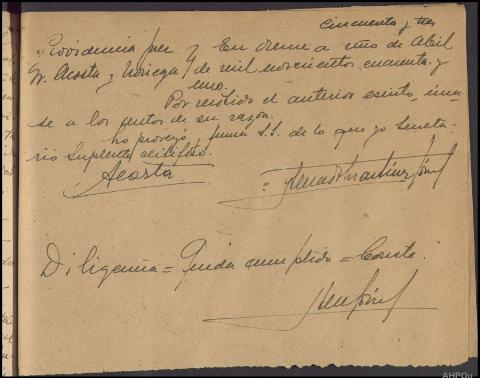 Cincuenta y tres
Providencia juez } En Orense a uno de Abril
Sr. Acosta y Noriega } de mil novecientos cuarenta y
uno.
Por recibido el anterior escrito, úna-
se a los autos de su razón.
Lo proveyó, firma S.S. de lo que yo Secreta-
rio Suplente certifico.
Acosta
Martínez
Diligencia = Queda cumplido = Conste.
AHPOu